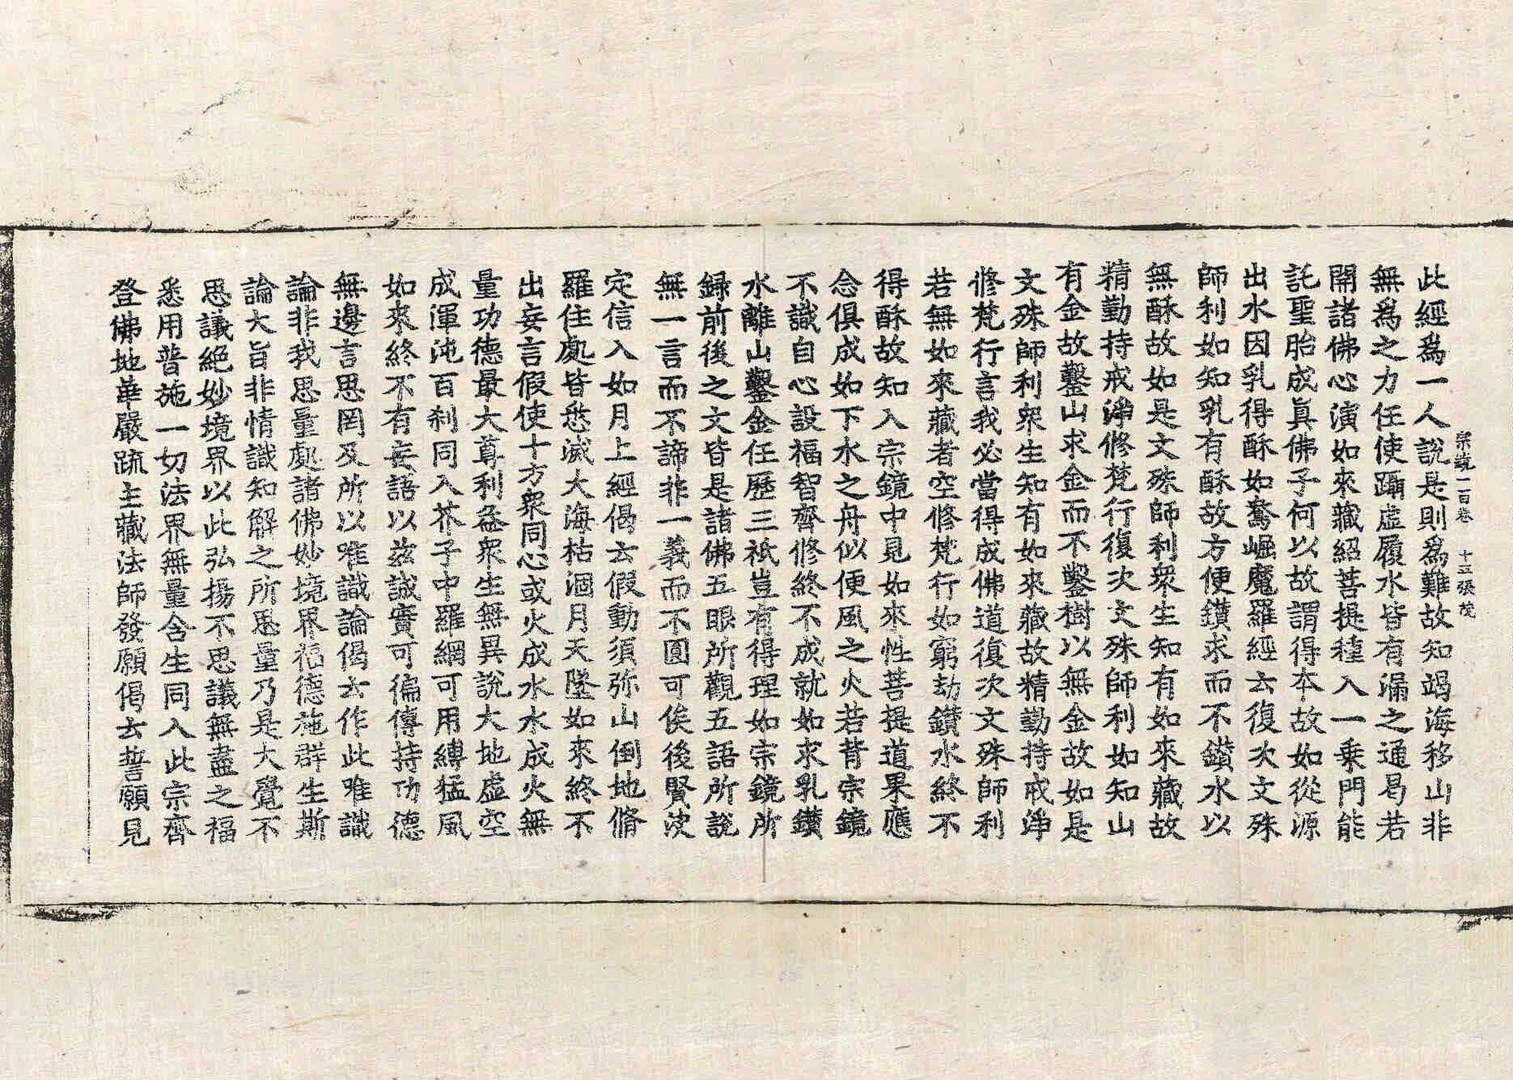 此經爲一人說是則爲難故知竭海移山非
宗鏡一百卷　十五張茂
無爲之力任使躡虛履水皆有漏之通曷若
開諸佛心演如來藏紹菩提種入一乗門能
託聖胎成眞佛子何以故謂得本故如從源
出水因乳得酥如鴦崛魔羅經云復次文殊
師利如知乳有酥故方便鑽求而不鑽水以
無酥故如是文殊師利衆生知有如來藏故
精勤持戒淨修梵行復次文殊師利如知山
有金故鑿山求金而不鑿樹以無金故如是
文殊師利衆生知有如來藏故精勤持戒淨
修梵行言我必當得成佛道復次文殊師利
若無如來藏者空修梵行如窮劫鑽水終不
得酥故知入宗鏡中見如來性菩提道果應
念俱成如下水之舟似便風之火若背宗鏡
不識自心設福智齊修終不成就如求乳鑽
水離山鑿金任歷三祇豈有得理如宗鏡所
録前後之文皆是諸佛五眼所觀五語所說
無一言而不諦非一義而不圓可俟後賢決
定信入如月上經偈云假動須弥山倒地脩
羅住處皆悉滅大海枯涸月天墜如來終不
出妄言假使十方衆同心或火成水水成火無
量功德最大尊利益衆生無異說大地虛空
成渾沌百刹同入芥子中羅網可用縛猛風
如來終不有妄語以玆誠實可徧傳持功德
無邊言思罔及所以唯識論偈云作此唯識
論非我思量處諸佛妙境界福德施群生斯
論大旨非情識知解之所思量乃是大覺不
思議絕妙境界以此弘揚不思議無盡之福
悉用普施一切法界無量含生同入此宗齊
登佛地華嚴䟽主藏法師發願偈云誓願見